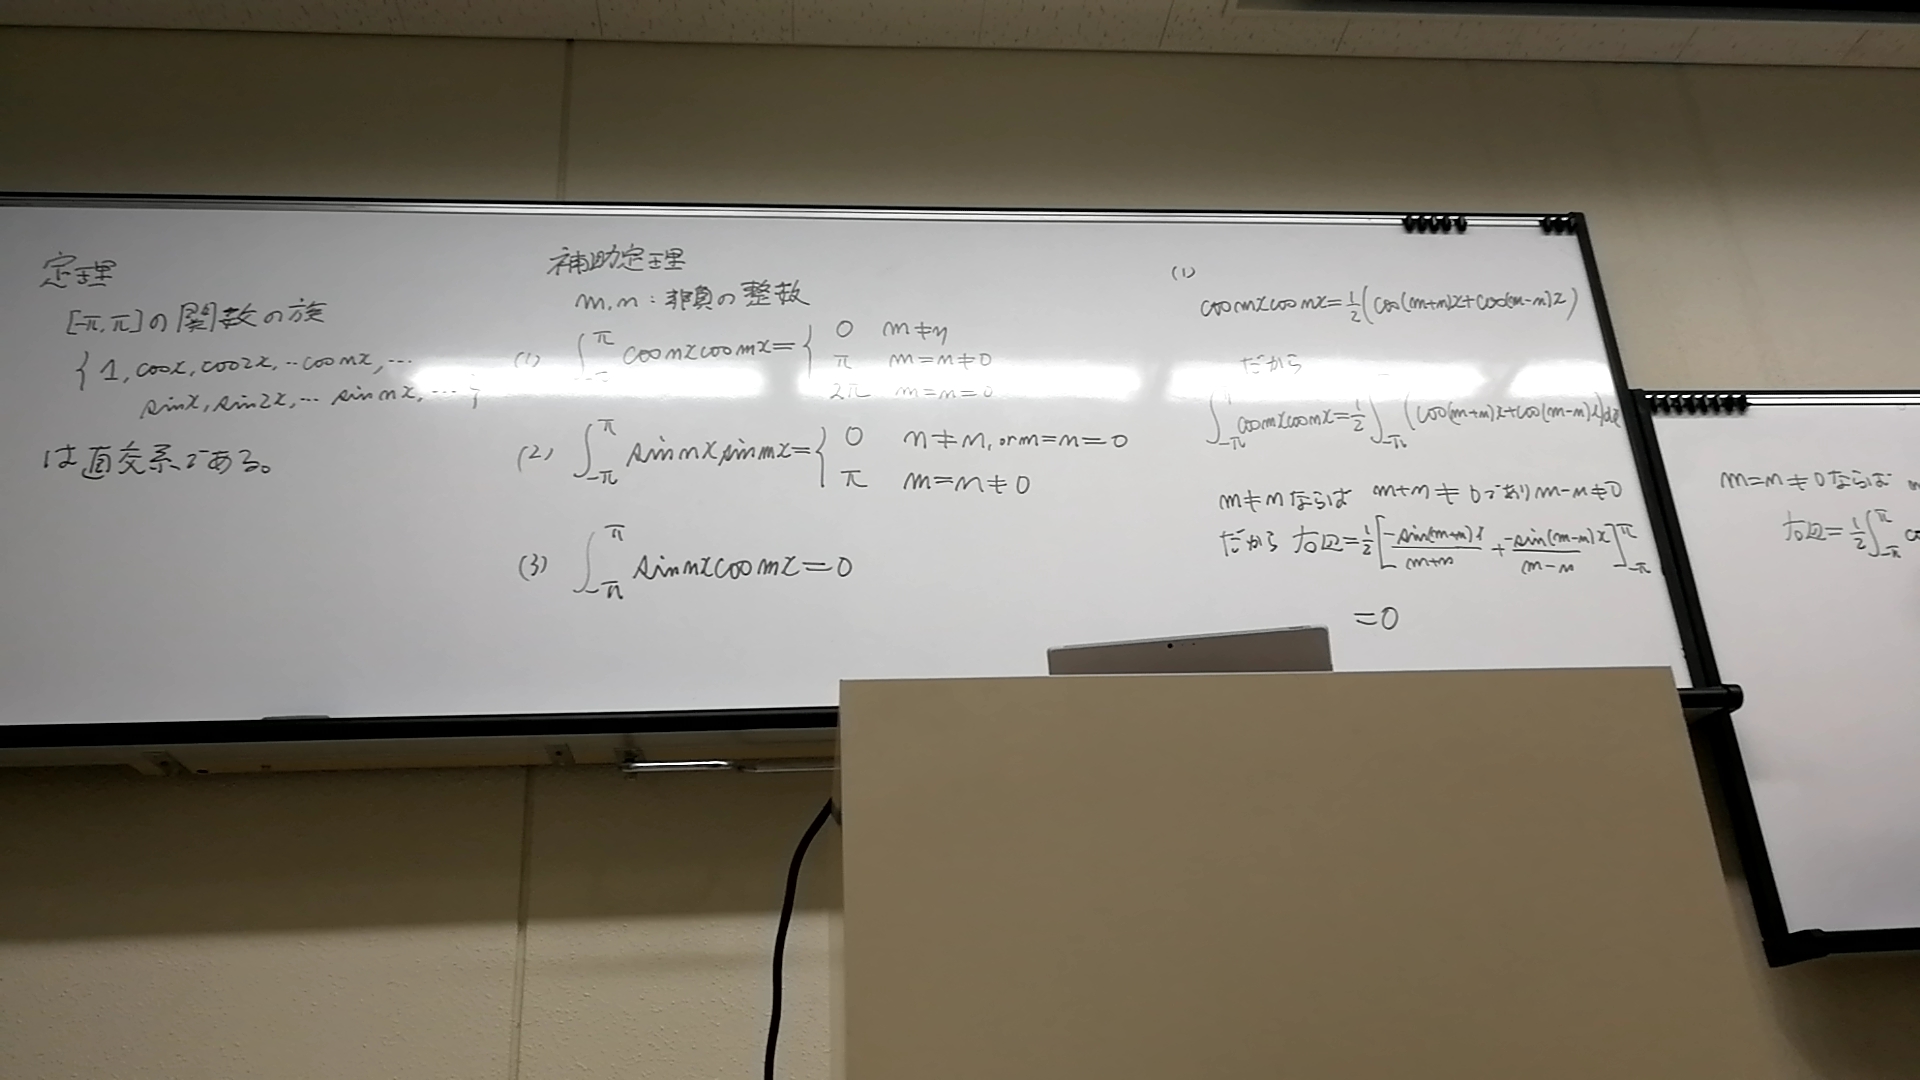 定理
[-π,π]の関数の族
{1, cosx, cos2x, ‥cosnx, …
sinx, sin2x, … sin nx, … }
は直交系である。
補助定理
m,n : 非負の整数
(1) ∫_{-π}^{π} cosnxcosmx = { 0 m≠n
π m=n≠0
2π m=n=0
(2) ∫_{-π}^{π} sinnxsinmx = { 0 n≠m, or m=n=0
π m=n≠0
(3) ∫_{-π}^{π} sinnxcosmx=0
(1)
cosmxcosnx=1/2(cos(m+n)x+cos(m-n)x)
だから
∫_{-π}^{π} cosmxcosnx=1/2∫_{-π} (cos(m+n)x+cos(m-n)x)dx
m≠nならば m+n≠0であり m-n≠0
だから 右辺=1/2[-sin(m+n)x/m+n + -sin(m-n)x/m-n]_{-π}^{π}
=0
m=n≠0ならば
右辺=1/2∫_{-π}^{π}